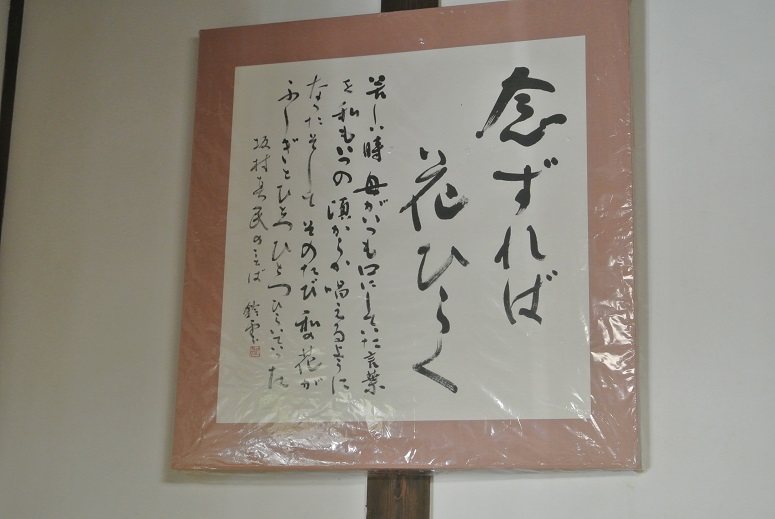 念ずれば
花ひらく
苦しい時母がいつも口にしていた言葉
を私もいつの頃からか唱えるように
なったそしてそのたび私の花が
ふしぎとひとつひとつひらいていった
坂村真民のことば